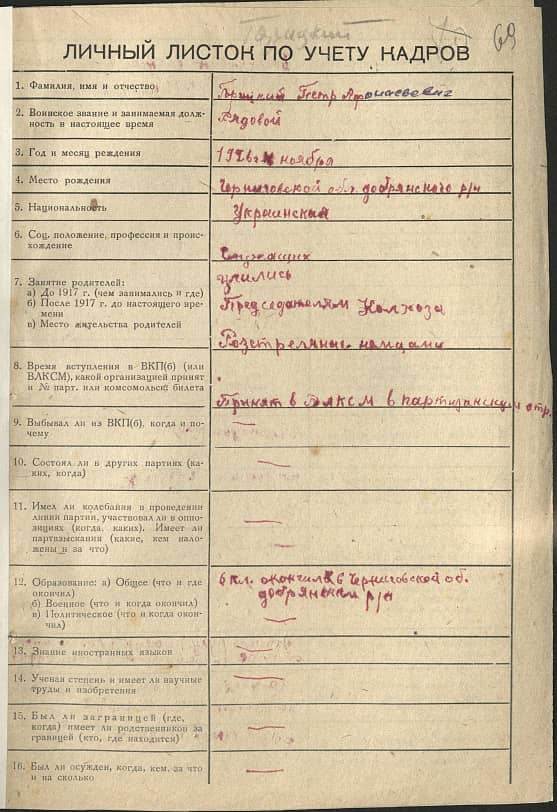 69
ЛИЧНЫЙ ЛИСТОК ПО УЧЕТУ КАДРОВ
1. Фамилия, имя и отчество
Петр Афонаевевич
2. Воинское звание и занимаемая долж-
ность в настоящее время
Рядовой
3. Год и месяц рождения
1926 г. ноября
4. Место рождения
Черниговской обл. добрянского р/н
5. Национальность
Украинский
6. Соц. положение, профессия и проис-
хождение
Служащих
7. Занятие родителей:
а) До 1917 г. (чем занимались и где)
учились
б) После 1917 г. до настоящего вре-
мени
Председателям Колхоза
в) Место жительства родителей
Розстреляные немцами
8. Время вступления в ВКП(б) (или
ВЛКСМ), какой организацией принят
и № парт. или комсомольск. билета
Принят в ВЛКСМ в партизанском отр.
9. Выбывал ли из ВКП(б), когда и по-
чему
—
10. Состоял ли в других партиях (ка-
ких, когда)
—
11. Имел ли колебания в проведении
линии партии, участвовал ли в оппо-
зициях (когда, каких). Имеет ли
партвзыскания (какие, кем нало-
жены и за что)
—
—
12. Образование: а) Общее (что и где
окончил)
6 кл. окончил в Черниговской об.
добрянском р/н
б) Военное (что и когда окончил)
в) Политическое (что и когда окон-
чил)
—
13. Знание иностранных языков
—
14. Ученая степень и имеет ли научные
труды и изобретения
—
15. Был ли заграницей (где,
когда) имеет ли родственников за
границей (кто, где находится)
—
16. Был ли осужден, когда, кем, за что
и на сколько
—